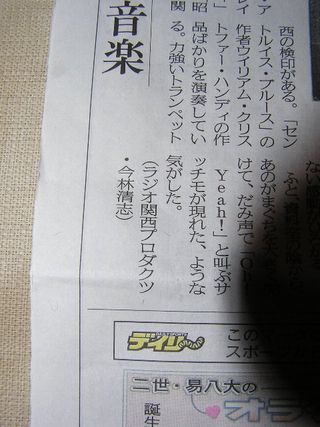 音楽
西の検印がある。「セン
トルイス・ブルース」の
作者ウイリアム・クリス
トファー・ハンディの作
品ばかりを演奏してい
る。力強いトランペット
あのがまぐちを
けて、だみ声で「Oh
Yeah!」と叫ぶサ
ッチモが現れた、ような
気がした。
(ラジオ関西プロダクツ
・今林清志)
デイリー
この
スポー
二世・易八大の
オラ
誕生